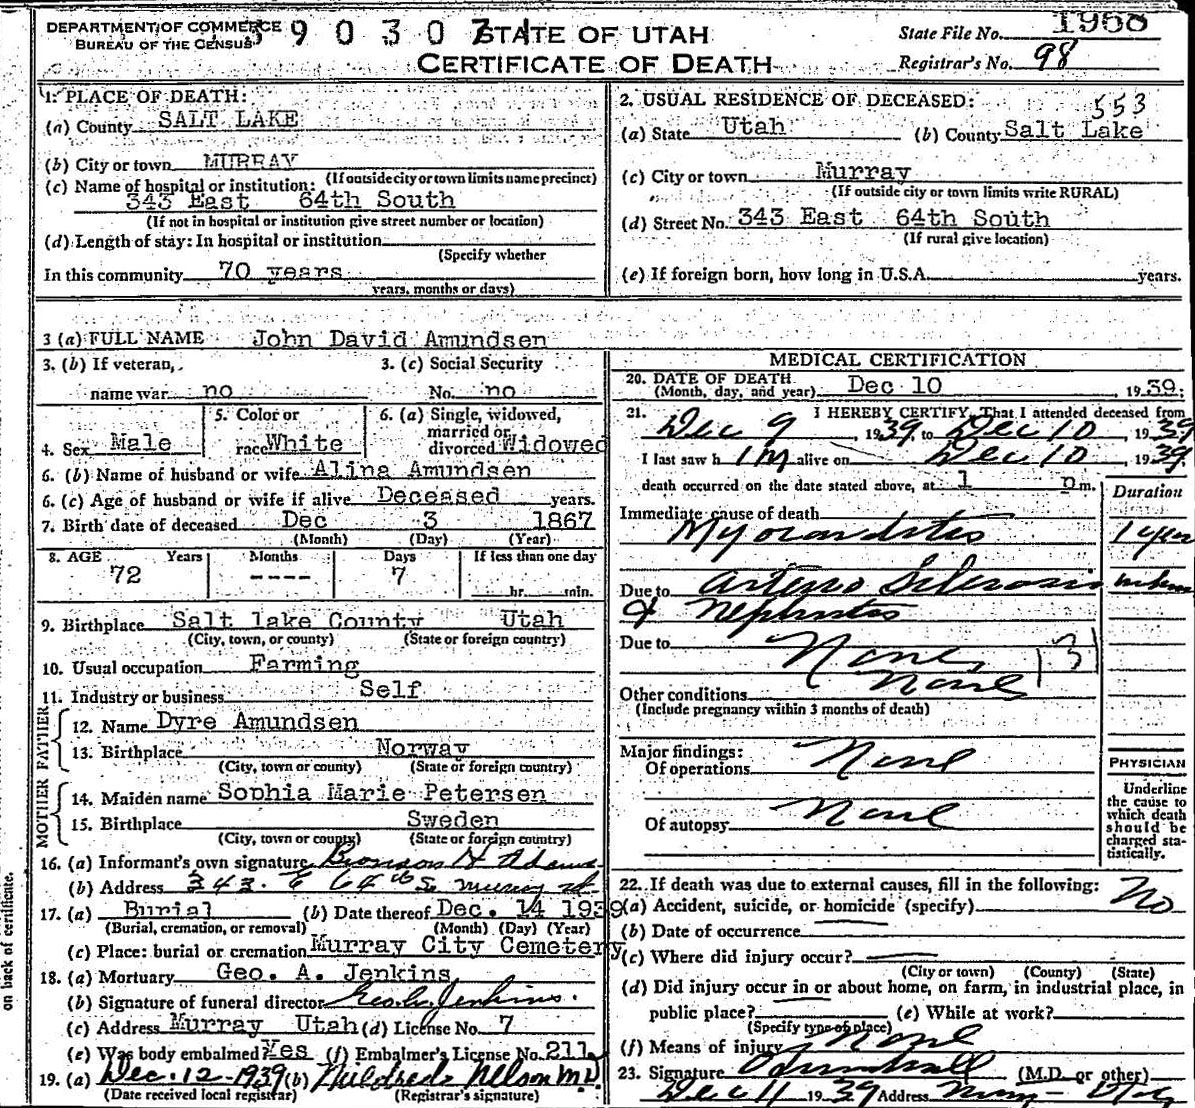 DEPARTMENT OF COMMERCE
BUREAU OF THE CENSUS
3 9 0 3 0 7 1
STATE OF UTAH
CERTIFICATE OF DEATH
State File No. 1968
Registrar's No. 98
1. PLACE OF DEATH:
(a) County SALT LAKE
(b) City or town MURRAY
(If outside city or town limits name precinct)
(c) Name of hospital or institution:
343 East 64th South
(If not in hospital or institution give street number or location)
(d) Length of stay: In hospital or institution
(Specify whether
In this community 70 years
years, months or days)
2. USUAL RESIDENCE OF DECEASED: 553
(a) State Utah (b) County Salt Lake
(c) City or town Murray
(If outside city or town limits write RURAL)
(d) Street No. 343 East 64th South
(If rural give location)
(e) If foreign born, how long in U.S.A. years.
3 (a) FULL NAME John David Amundsen
3. (b) If veteran, name war no
3. (c) Social Security No. no
4. Sex Male
5. Color or race White
6. (a) Single, widowed, married or divorced Widowed
6. (b) Name of husband or wife Alina Amundsen
6. (c) Age of husband or wife if alive Deceased years.
7. Birth date of deceased Dec 3 1867
(Month) (Day) (Year)
8. AGE Years Months Days If less than one day
72 ---- 7 hr. min.
9. Birthplace Salt lake County Utah
(City, town, or county) (State or foreign country)
10. Usual occupation Farming
11. Industry or business Self
FATHER
12. Name Dyre Amundsen
13. Birthplace Norway
(City, town or county) (State or foreign country)
MOTHER
14. Maiden name Sophia Marie Petersen
15. Birthplace Sweden
(City, town or county) (State or foreign country)
16. (a) Informant's own signature Bronson H Adams
(b) Address 343 E 64th S. Murray
17. (a) Burial (b) Date thereof Dec. 14 1939
(Burial, cremation, or removal) (Month) (Day) (Year)
(c) Place: burial or cremation Murray City Cemetery
18. (a) Mortuary Geo. A. Jenkins
(b) Signature of funeral director Geo. A. Jenkins.
(c) Address Murray Utah (d) License No. 7
(e) Was body embalmed? Yes (f) Embalmer's License No. 211
19. (a) Dec. 12-1939 (b) Mildred Nelson M.D.
(Date received local registrar) (Registrar's signature)
on back of certificate.
MEDICAL CERTIFICATION
20. DATE OF DEATH (Month, day, and year) Dec 10 1939:
21. I HEREBY CERTIFY, That I attended deceased from
Dec 9, 1939, to Dec 10, 1939
I last saw him alive on Dec 10, 1939.
death occurred on the date stated above, at 1 pm.
Duration
Immediate cause of death
Myocarditis 1 year
Due to Arterio Sclerosis
& Nephritis
Due to None 131
None
Other conditions
(Include pregnancy within 3 months of death)
Major findings:
Of operations None
Of autopsy None
PHYSICIAN
Underline
the cause to
which death
should be
charged sta-
tistically.
22. If death was due to external causes, fill in the following:
(a) Accident, suicide, or homicide (specify) No
(b) Date of occurrence
(c) Where did injury occur?
(City or town) (County) (State)
(d) Did injury occur in or about home, on farm, in industrial place, in
public place? (e) While at work?
(Specify type of place)
(f) Means of injury None
23. Signature (M.D. or other)
Dec 11 1939 Address Murray - Utah